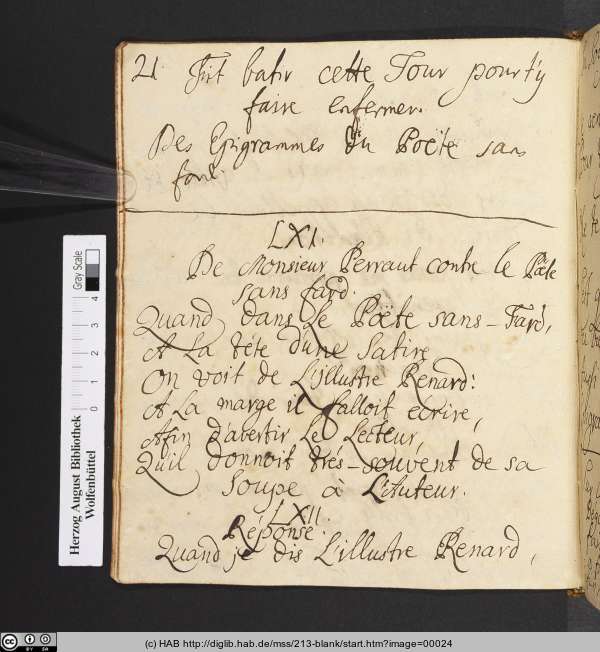 21. Fit batir cette Tour pour t'y
faire enfermer.
Des Epigrammes du Poëte sans
fard.
LXI.
De Monsieur Perraut contre le Poëte
sans fard.
Quand dans Le Poëte sans-Fard,
A La tête d'une Satire
On voit de L'illustre Renard:
A La marge il falloit ecrire,
Afin d'avertir Le Lecteur,
Qu'il donnoit trés-souvent de sa
Soupe à L'Auteur.
LXII.
Réponse.
Quand je dis L'illustre Renard,
Gray Scale
0 1 2 3 4
Herzog August Bibliothek
Wolfenbüttel
(c) HAB http://diglib.hab.de/mss/213-blank/start.htm?image=00024